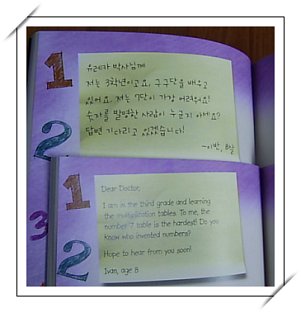 1
2
3
유레카 박사님께
저는 3학년이고요, 구구단을 배우고
있어요. 저는 7단이 가장 어려워요!
숫자를 발명한 사람이 누군지 아세요?
답변 기다리고 있겠습니다!
-이반, 8살
1
2
Dear Doctor,
I am in the third grade and learning
the multiplication tables. To me, the
number 7 table is the hardest! Do you
know who invented numbers?
Hope to hear from you soon!
Ivan, age 8